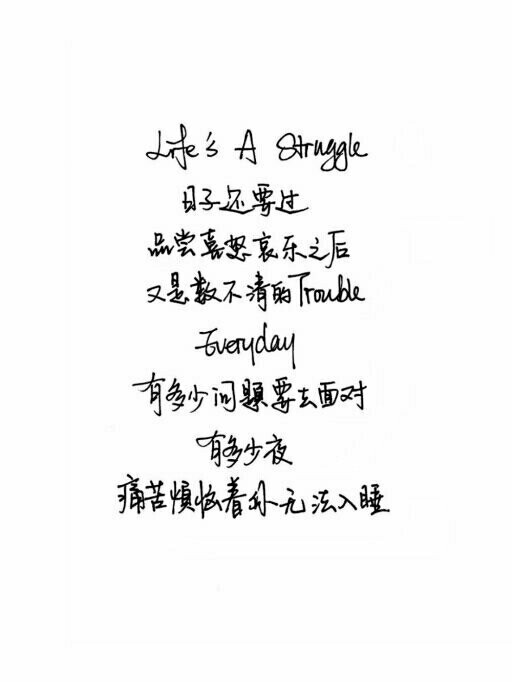 Life's A Struggle
日子还要过
品尝喜怒哀乐之后
又是数不清的Trouble
Everyday
有多少问题要去面对
有多少夜
痛苦煩恼着你无法入睡